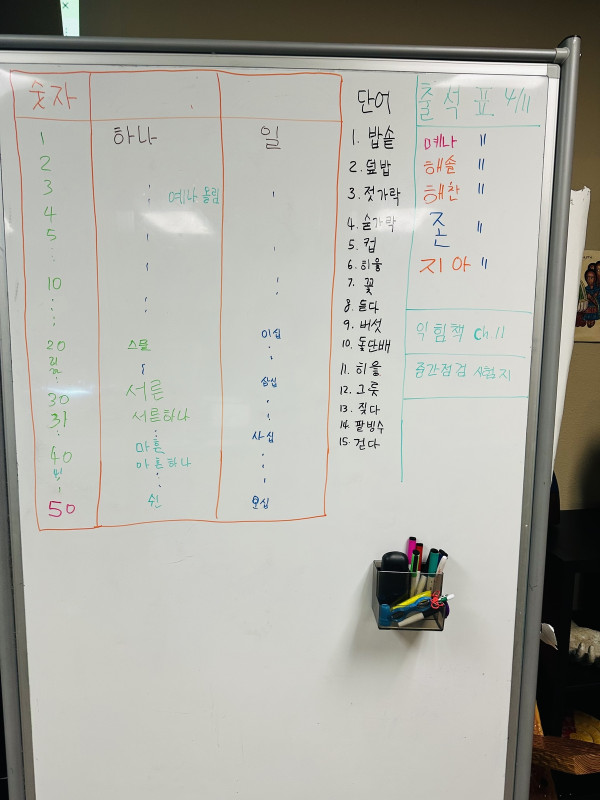 숫자
하나 일
1
2
3
예나 올림
4
5
10
20 스물 이십
30 서른 삼십
31 서른하나
40 마흔 사십
아흔하나
50 쉰 오십
단어
1. 밥솥
2. 덮밥
3. 젓가락
4. 숟가락
5. 컵
6. 히읗
7. 꽃
8. 듣다
9. 버섯
10. 돛단배
11. 히읗
12. 그릇
13. 짖다
14. 팥빙수
15. 걷다
출석표 4/11
예나 "
해솔 "
해찬 "
존 "
지아 "
익힘책 ch 11
중간점검 시험지